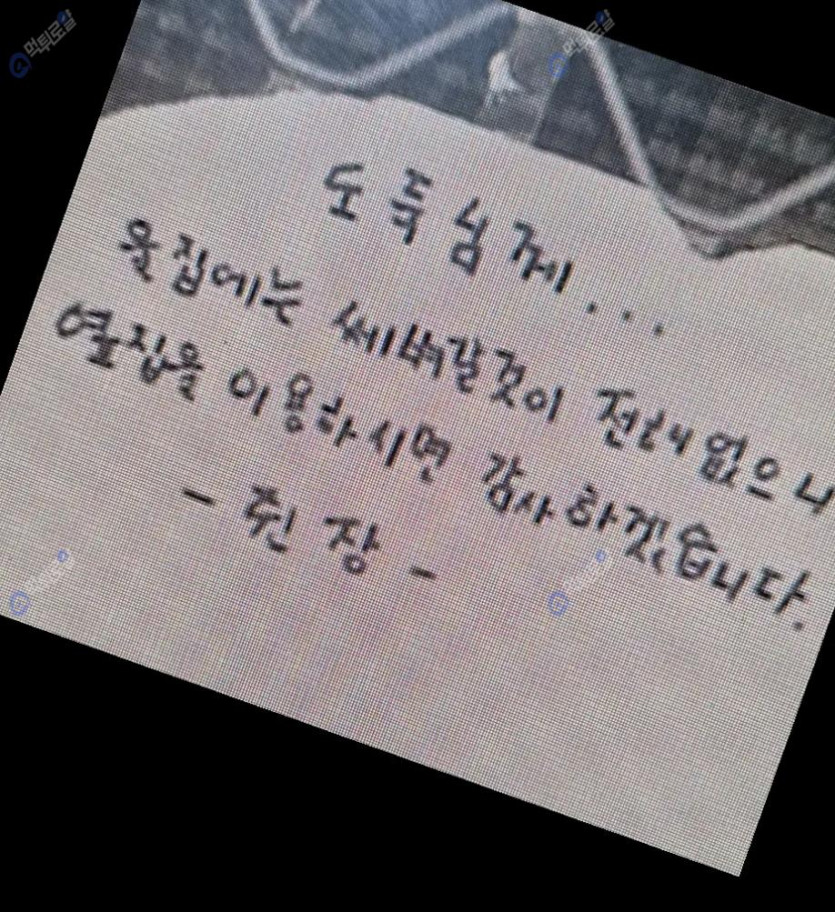 먹튀로얄 먹튀로얄
도둑님께...
울집에는 쎄벼갈것이 전혀없으니
옆집을 이용하시면 감사하겠습니다.
- 쥔장 -
먹튀로얄 먹튀로얄